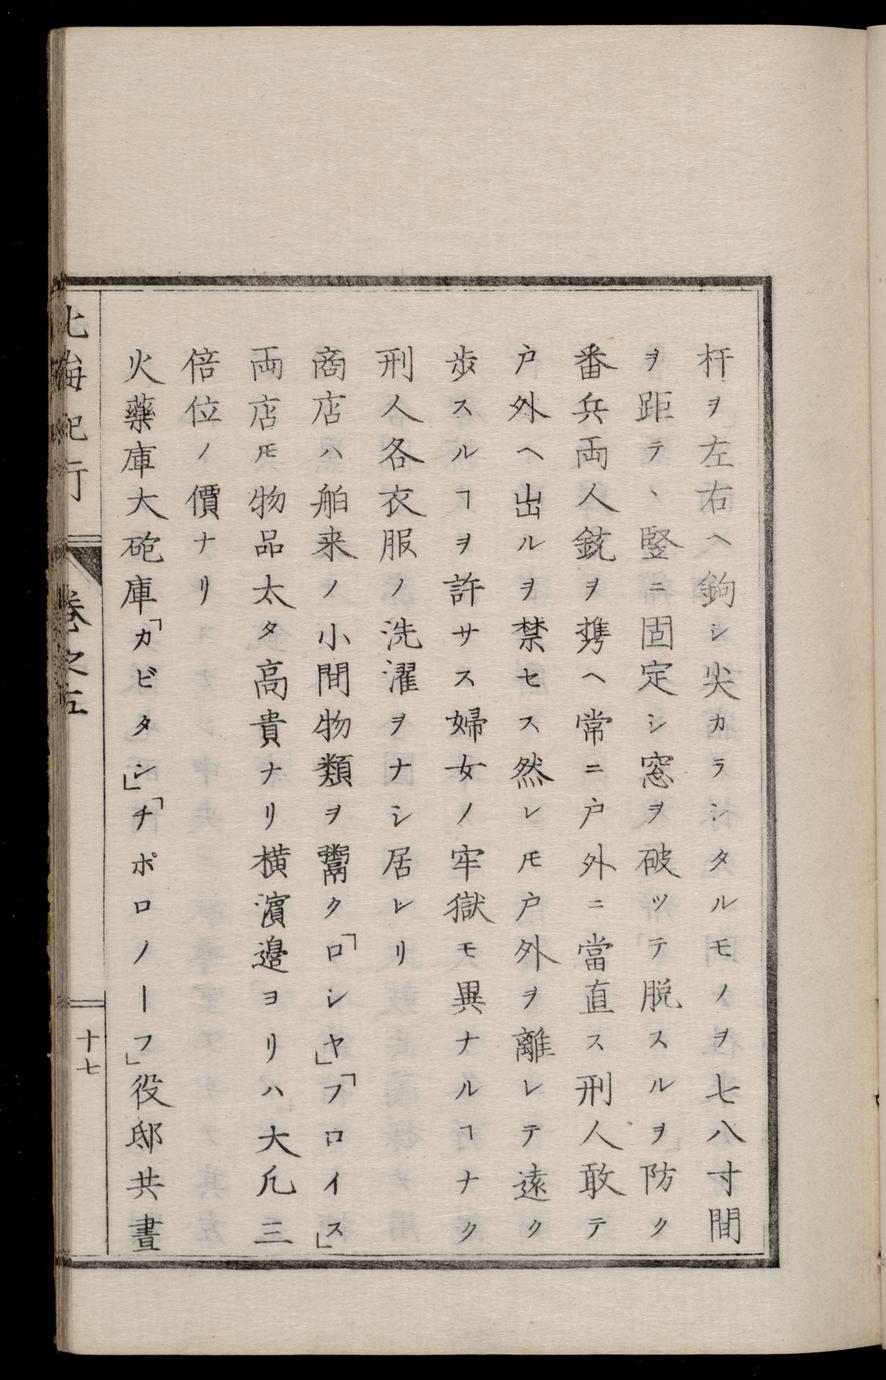 杆ヲ左右ヘ鉤シ尖カラシタルモノヲ七八寸間
ヲ距テヽ竪ニ固定シ窓ヲ破ッテ脱スルヲ防ク
番兵両人銃ヲ携ヘ常ニ戸外ニ當直ス刑人敢テ
戸外ヘ出ルヲ禁セス然レ𪜈戸外ヲ離レテ遠ク
歩スルヿヲ許サス婦女ノ牢獄モ異ナルヿナク
刑人各衣服ノ洗濯ヲナシ居レリ
商店ハ舶来ノ小間物類ヲ鬻ク「ロシヤ」「フロイス」
両店𪜈物品太タ高貴ナリ横濱邉ヨリハ大凢三
倍位ノ價ナリ
火藥庫大砲庫「カビタン」「チポロノーフ」役邸共晝
北海紀行
卷之五
十七